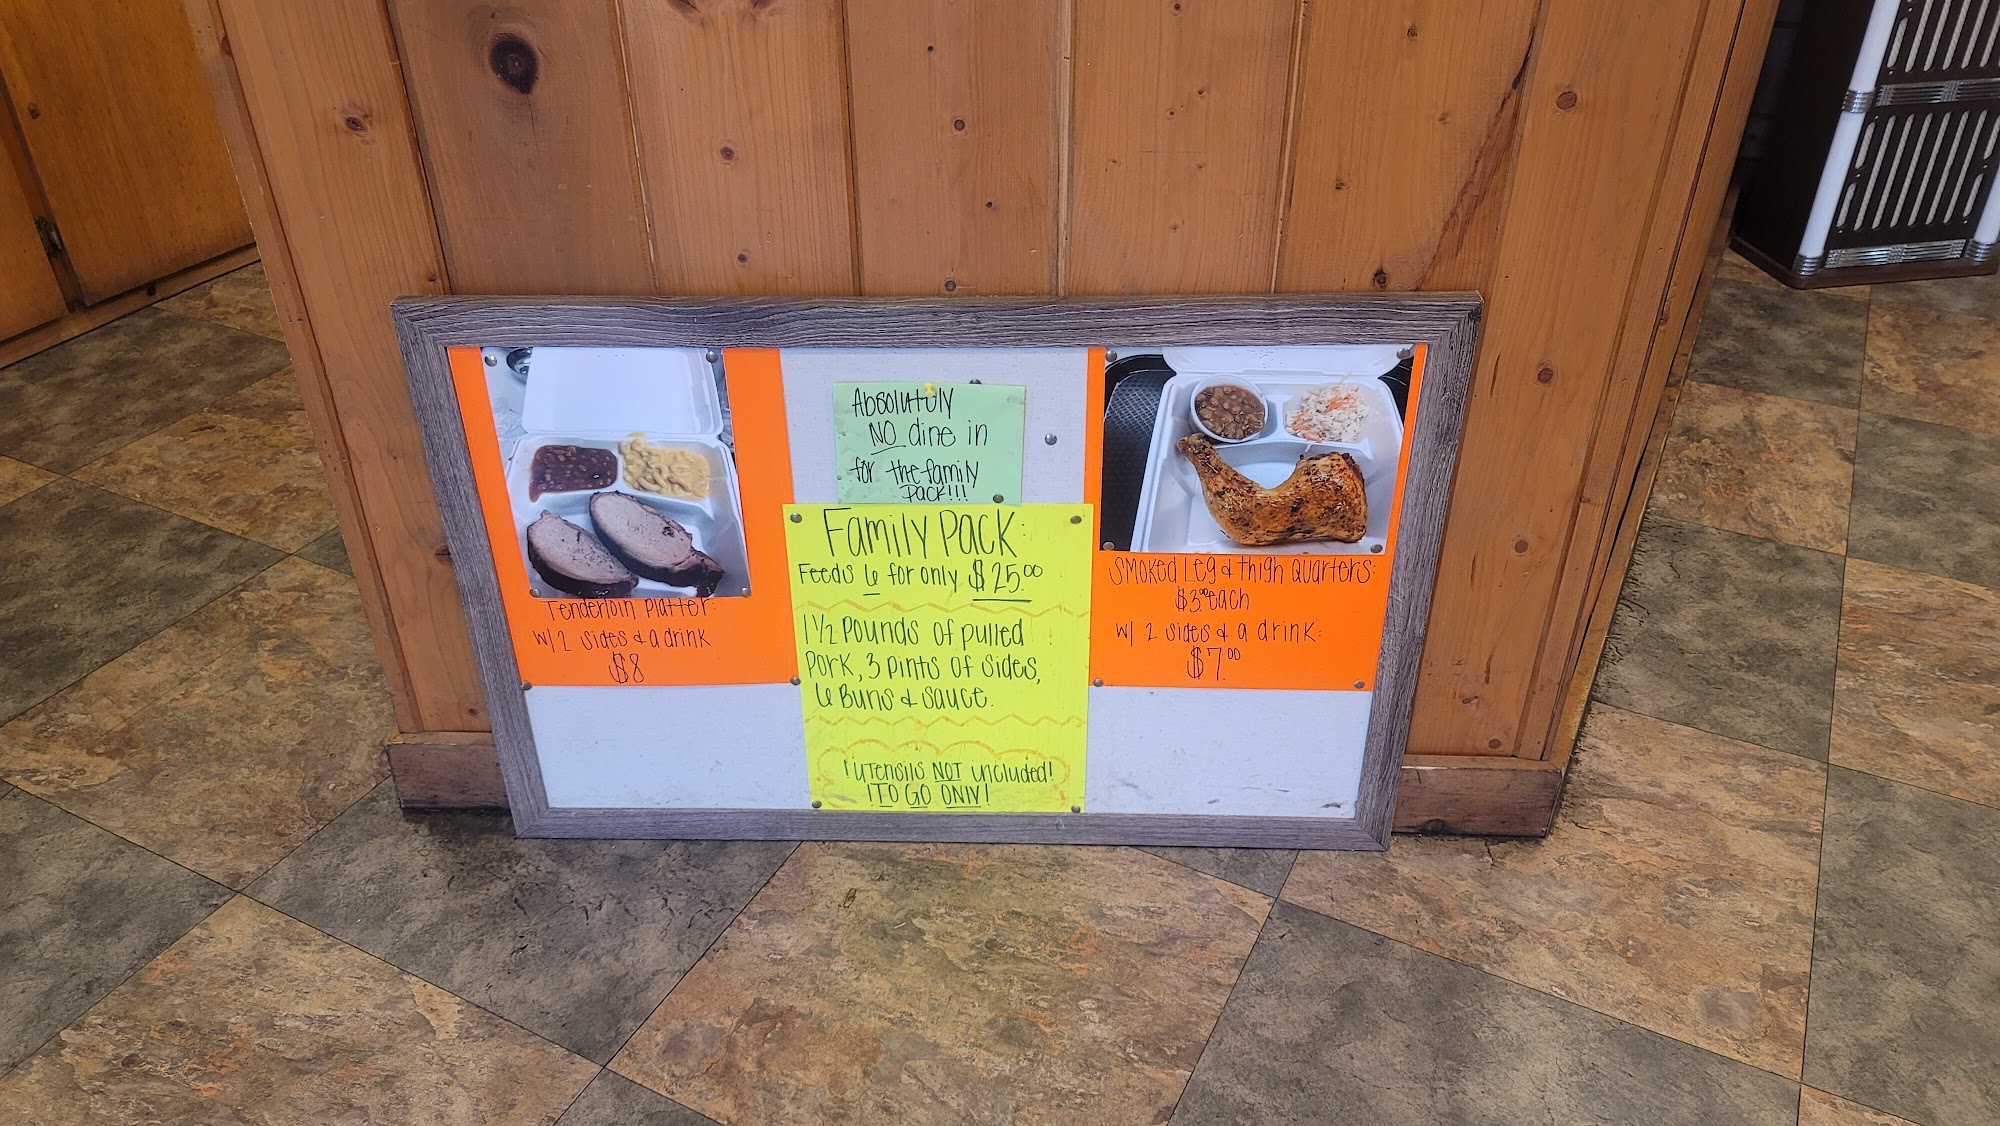 Tenderloin Platter:
w/ 2 sides & a drink
$8
Absolutuly
NO dine in
for the family
pack!!!
Family Pack:
Feeds 6 for only $25.00
1 1/2 pounds of pulled
pork, 3 pints of sides,
6 Buns & sauce.
! utensils NOT included!
!TO GO ONLY!
Smoked Leg & thigh Quarters:
$3.00 each
w/ 2 sides & a drink:
$7.00